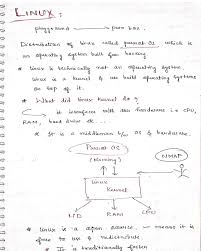 LINUX :
playground → pwn box.
Distribution of linux called parrot os which is
an operating system built for hacking.
Linux is technically not an operating system.
Linux is a kernel & we build operating systems
on top of it.
* What did linux kernel do ?
it interfaces with our hardware i.e CPU,
RAM, hard drive etc...
* It is a middleman b/w os & hardware.
Parrot OS
(Running)
NMAP
Linux
Kernel
RAM
CPU
* Linux is a open source, means it is
free to use & redistribute.
* It is traditionally faster